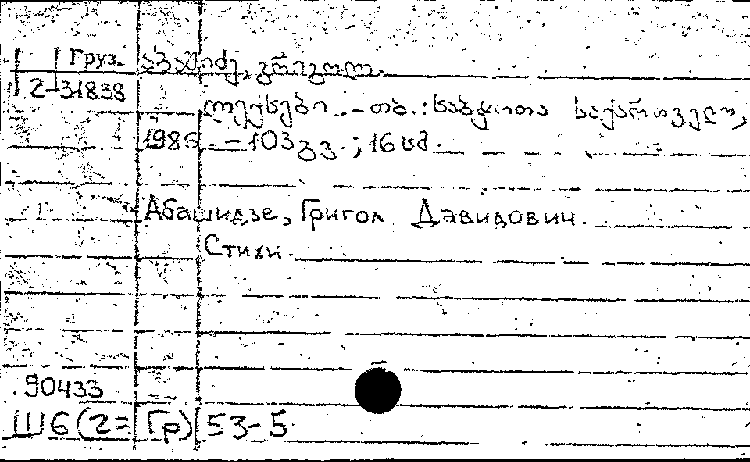 Груз. აბაშიძე, გრიგოლ.
2-31838
ლექსები. - თბ.: საბჭოთა საქართველო,
1986. - 103 გვ.; 16 სმ.
Абашидзе, Григол Давидович.
Стихи.
90433
Ш6(2=Гр) 53-5